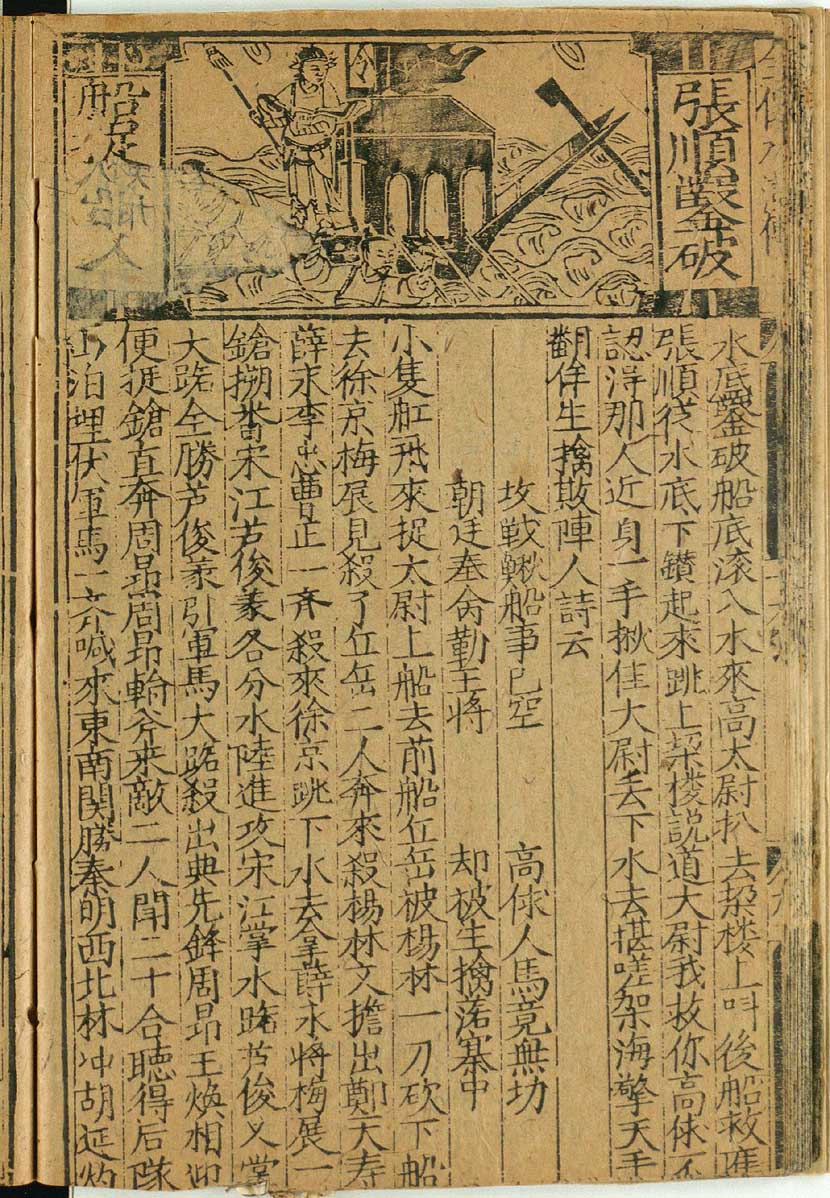 張順鑿破
船
人
令
水底鑿破船底滚入水來高太尉扒去梁楼上呌後船救應
張順從水底下鑽起來跳上梁楼説道大尉我救你高俅不
認得那人近身一手揪住大尉丢下水去堪嗟架海擎天手
翻作生擒敗陣人詩云
攻戦鰍船事已空　高俅人馬竟無功
朝廷奉命勤王将　却被生擒落寨中
小隻舡飛來捉太尉上船去前船丘岳被楊林一刀砍下船
去徐京梅展見殺了丘岳二人奔來殺楊林文擔出鄭天寿
薛永李忠曹正一斉殺來徐京跳下水去拿薛永将梅展一
鎗搠番宋江芦俊義各分水陸進攻宋江掌水路芦俊义掌
大路全勝芦俊義引軍馬大路殺出典先鋒周昂王煥相迎
便挺鎗直奔周昂周昂輪斧来敵二人聞二十合聴得后隊
山泊埋伏軍馬一斉喊來東南関勝秦明西北林冲胡延灼